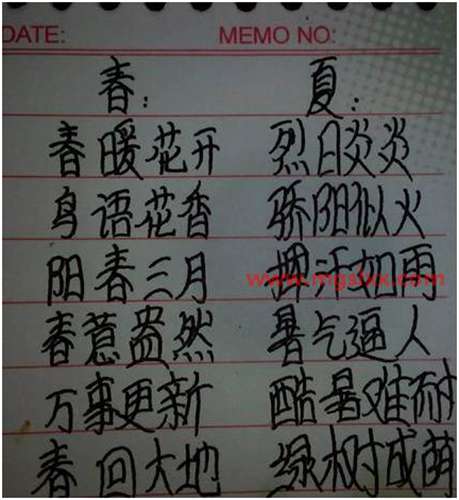 DATE: MEMO NO:
春： 夏：
春暖花开 烈日炎炎
鸟语花香 骄阳似火
阳春三月 挥汗如雨
www.mgslxx.com
春意盎然 暑气逼人
万事更新 酷暑难耐
春回大地 绿树成荫